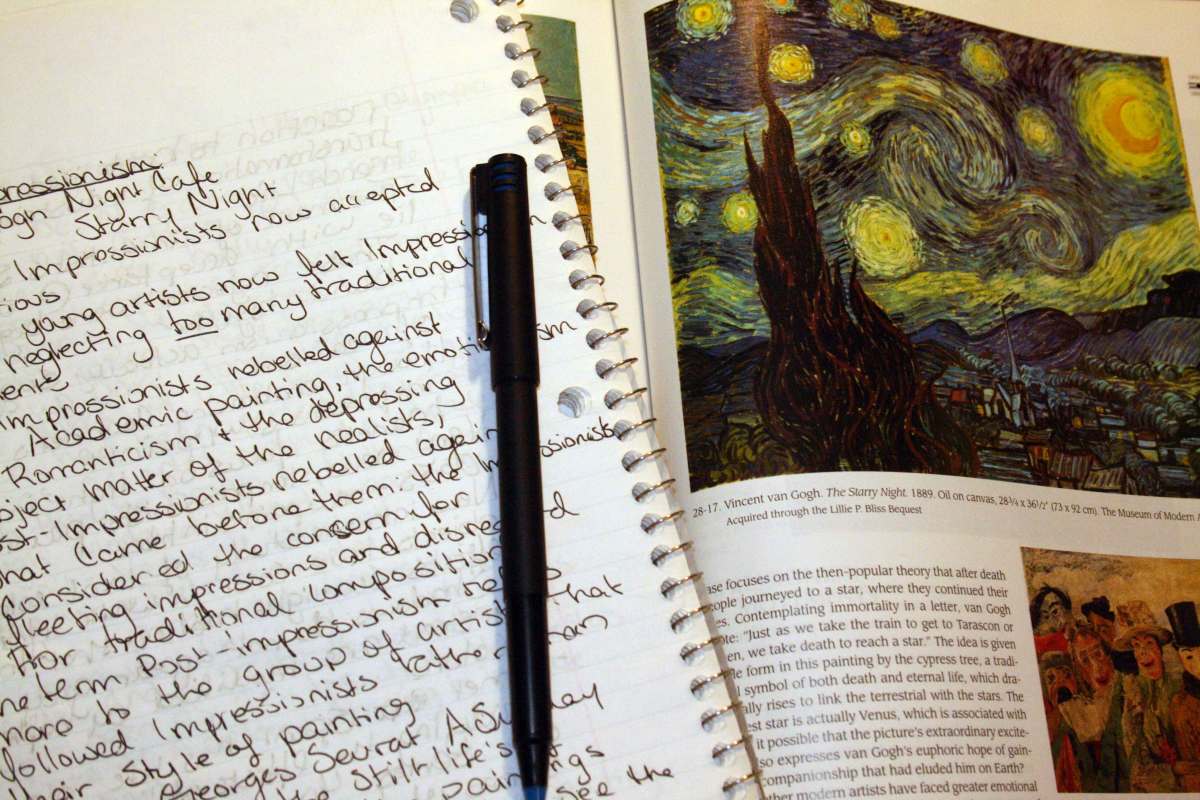 pressionism
ogh Night Cafe
Starry Night
Impressionists now accepted
ious
young artists now felt Impression
neglecting too many traditional
ents
Impressionists rebelled against
Academic painting, the emoti ism
Romanticism + the depressing
bject matter of the realists,
st Impressionists rebelled again
hat came before them: the Impressionists
Considered the consern for
fleeting impressions and disregard
for traditional composition
he term Post-impressionists
more to the group of artists that
followed Impressionists rather than
heir style of painting
Georges Seurat A Sunday
still life's
paintings
see the
28-17. Vincent van Gogh. The Starry Night. 1889. Oil on canvas, 28¾ x 36½" (73 x 92 cm). The Museum of Modern
Acquired through the Lillie P. Bliss Bequest
ase focuses on the then-popular theory that after death
ople journeyed to a star, where they continued their
es. Contemplating immortality in a letter, van Gogh
te: "Just as we take the train to get to Tarascon or
en, we take death to reach a star." The idea is given
le form in this painting by the cypress tree, a tradi-
l symbol of both death and eternal life, which dra-
ally rises to link the terrestrial with the stars. The
est star is actually Venus, which is associated with
it possible that the picture's extraordinary excite-
so expresses van Gogh's euphoric hope of gain-
ompanionship that had eluded him on Earth?
ther modern artists have faced greater emotional